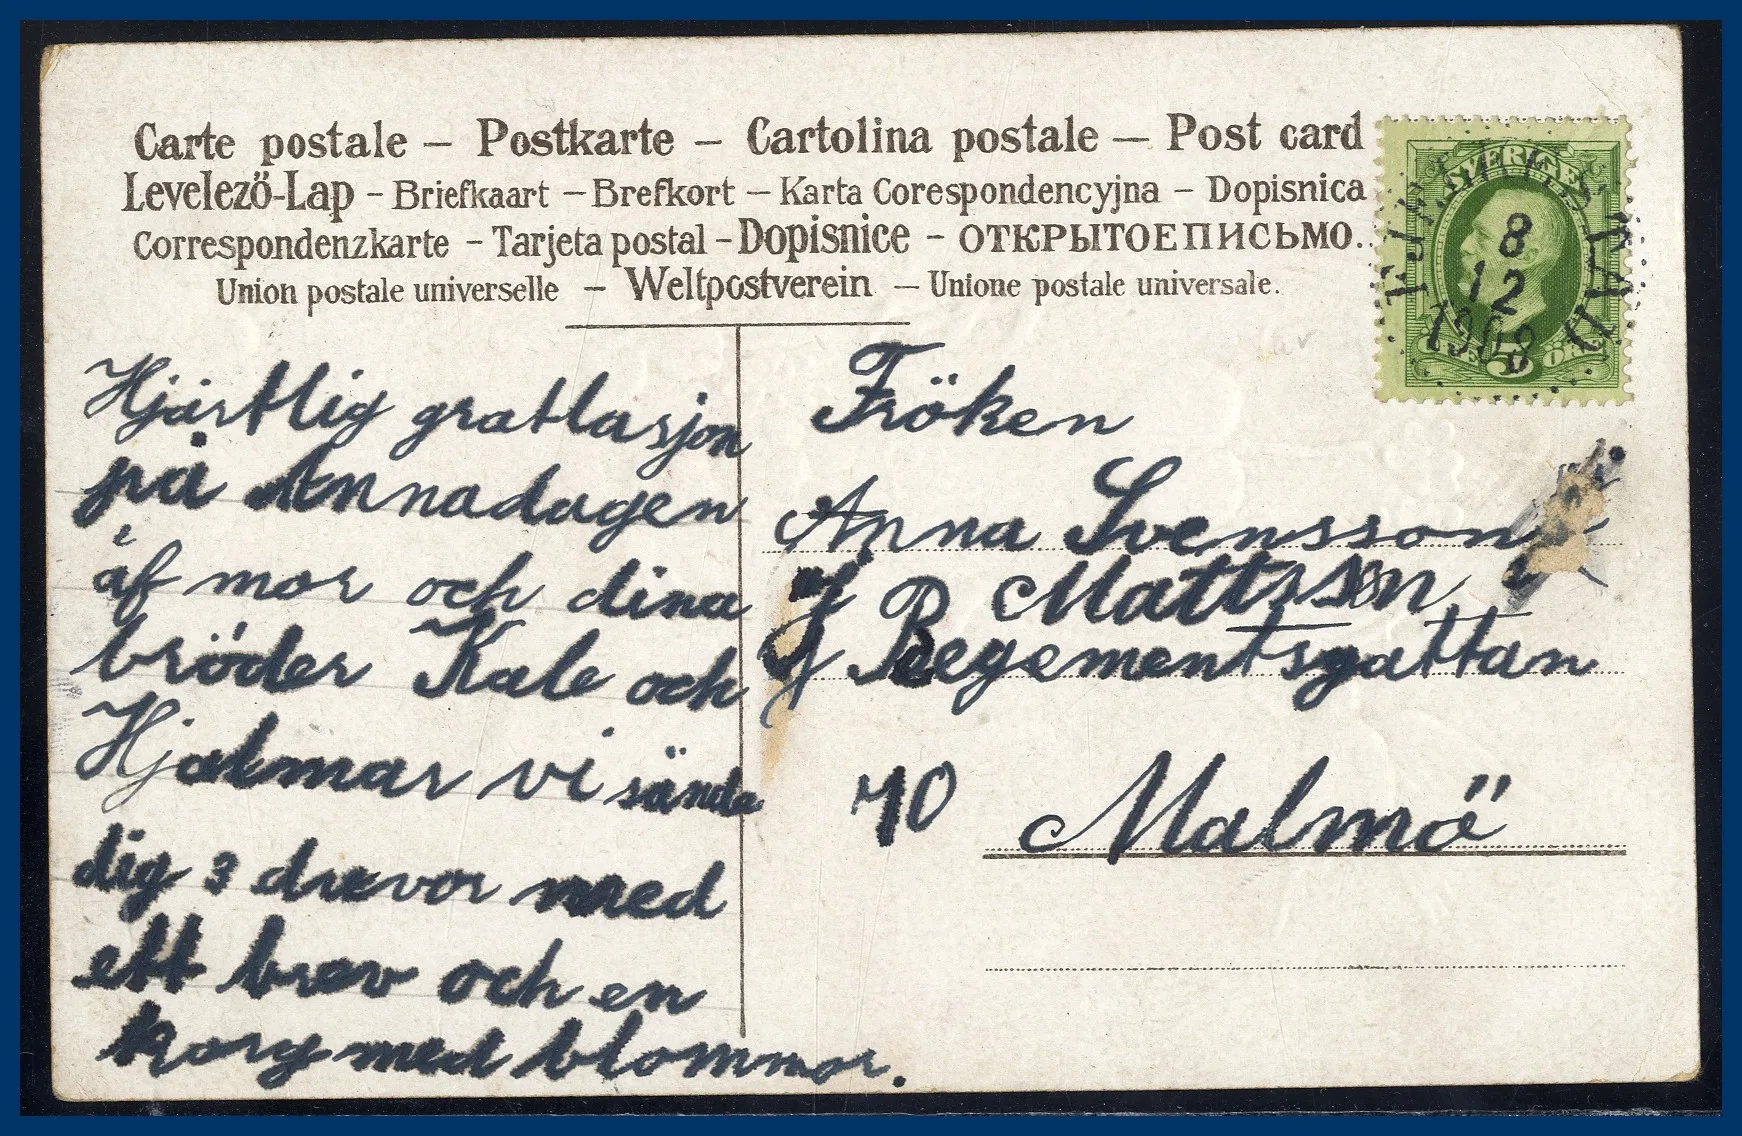 Carte postale – Postkarte – Cartolina postale – Post card
Levelező-Lap – Briefkaart – Brefkort – Karta Corespondencyjna – Dopisnica
Correspondenzkarte – Tarjeta postal – Dopisnice – ОТКРЫТОЕПИСЬМО.
Union postale universelle – Weltpostverein – Unione postale universale.
SVERIGE
8
12
1908
5
Hjärtlig gratlasjon
på Annadagen
af mor och dina
bröder Kale och
Hjalmar vi sända
dig 3 drevor med
ett brev och en
korg med blommor.
Fröken
Anna Svensson
af P Mattsson
Regementsgattan
70 Malmö